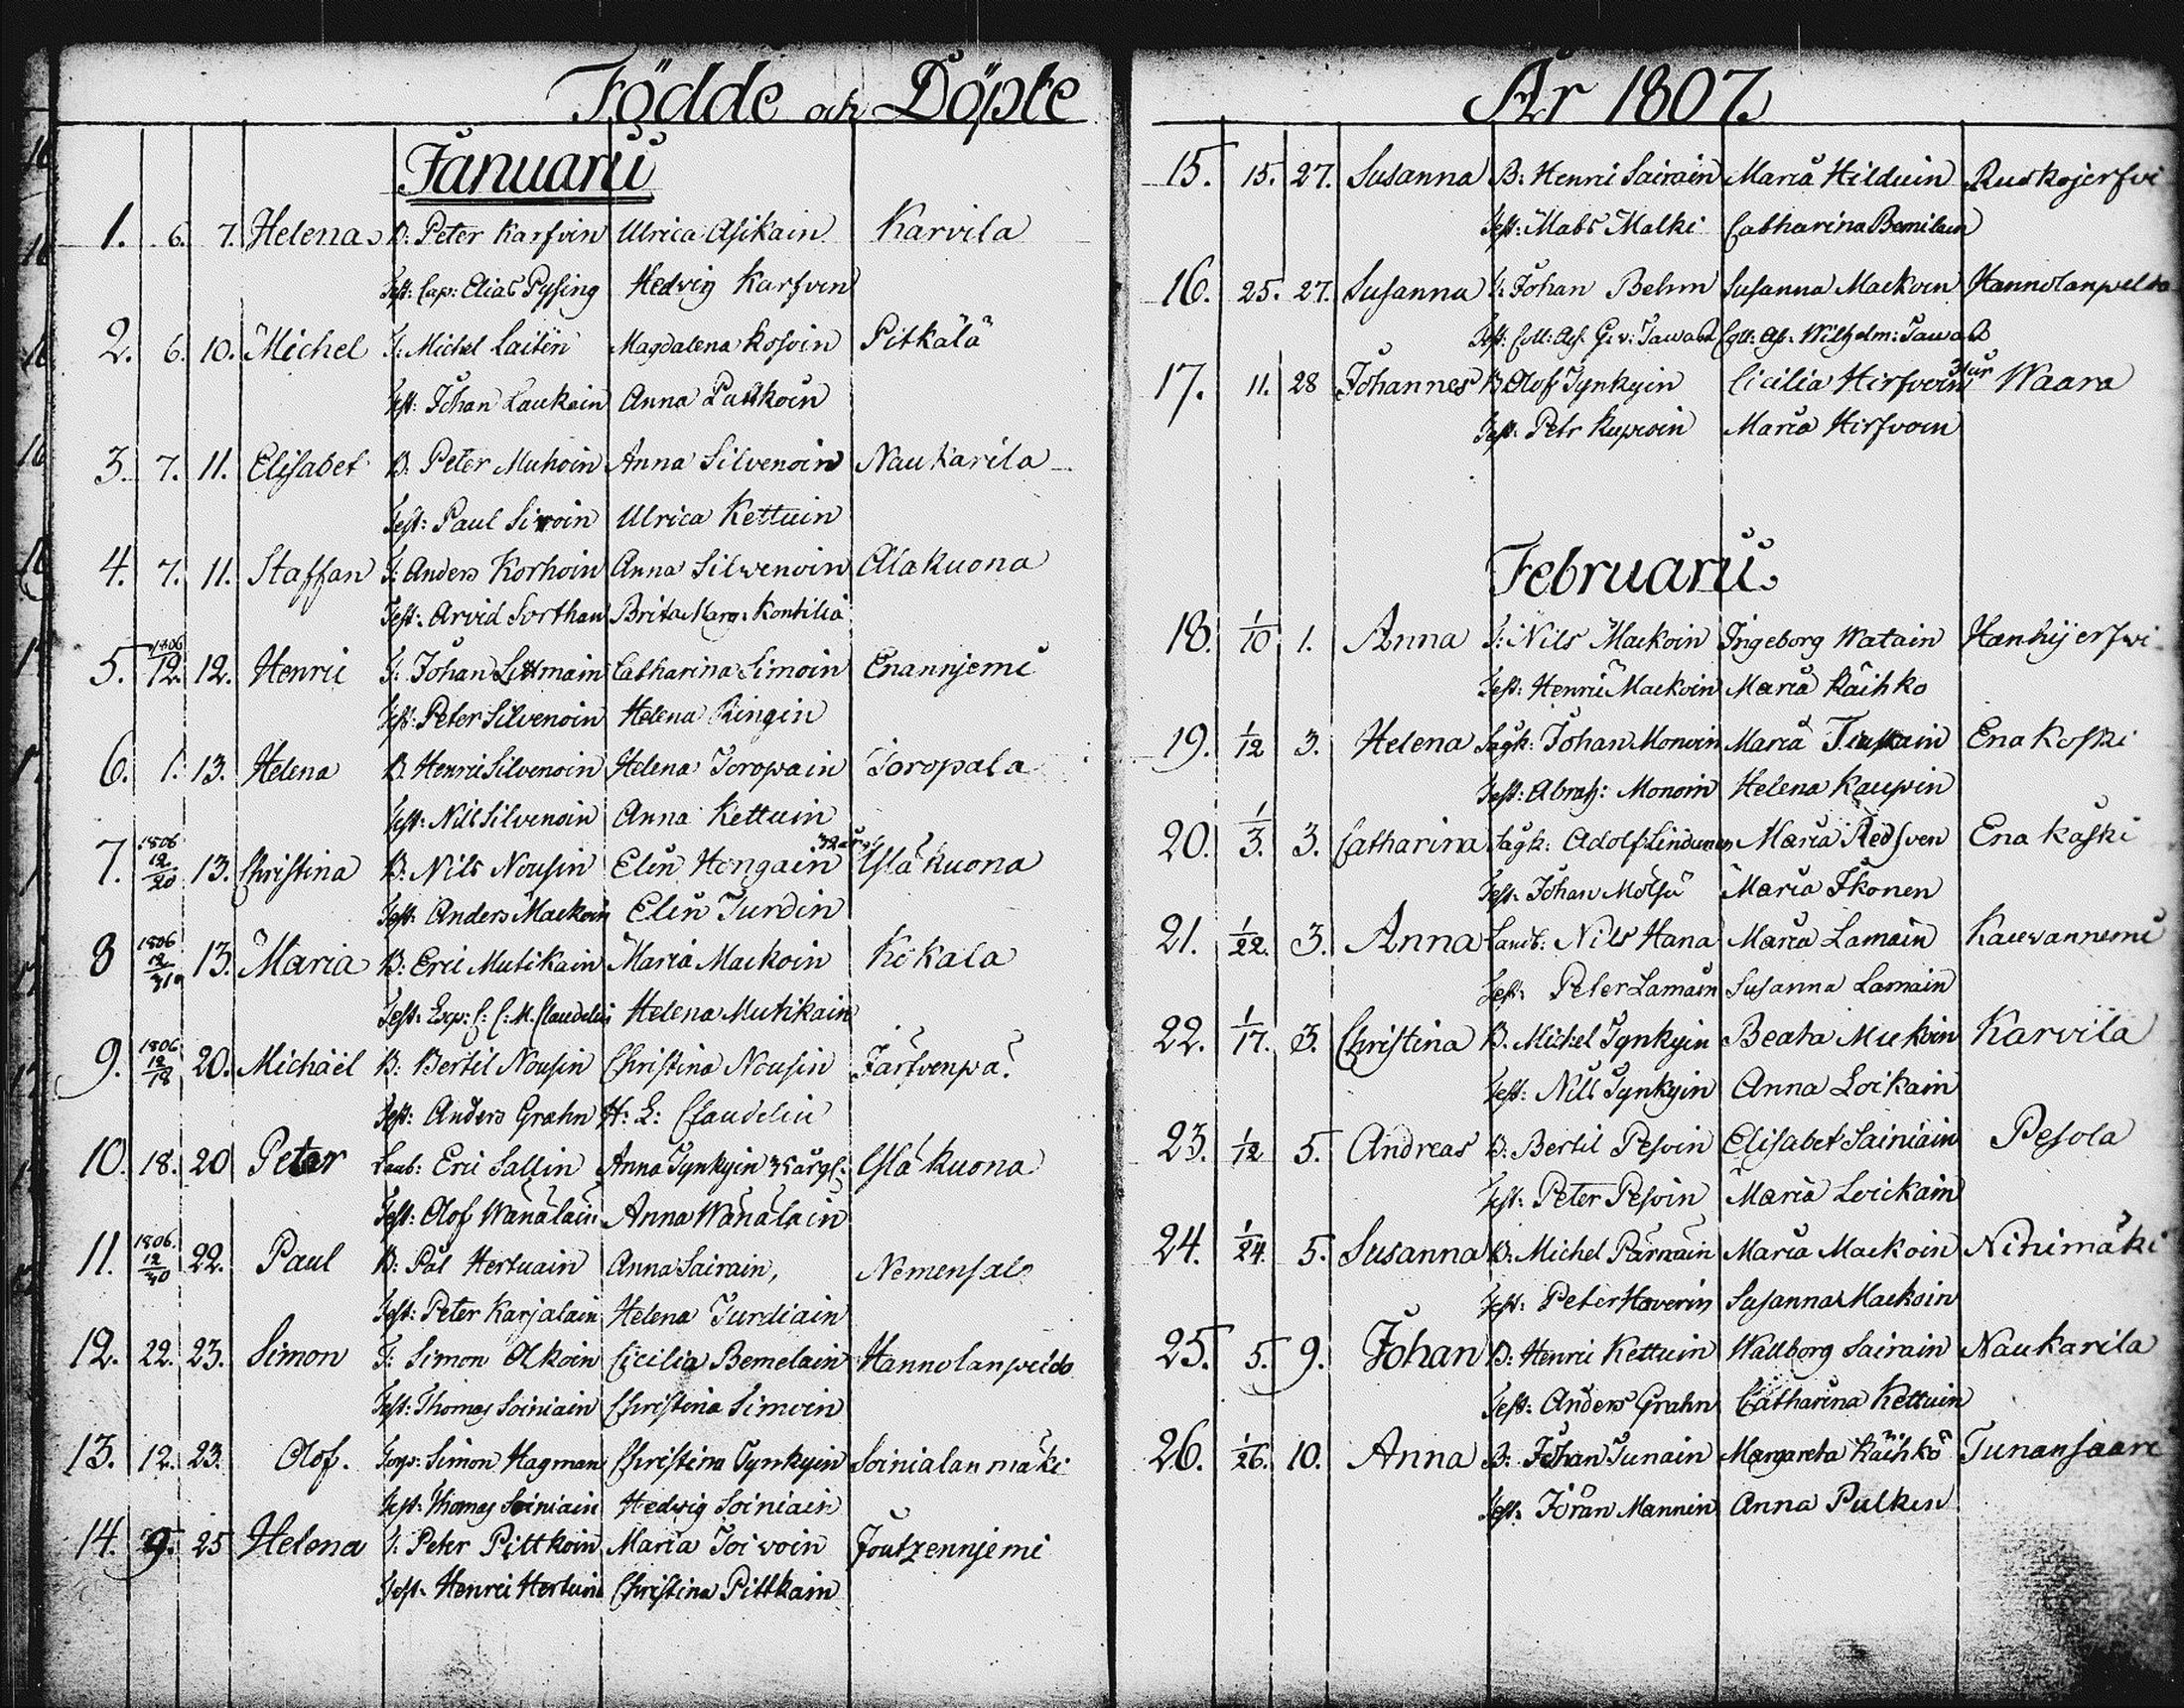 Födde och Döpte
Januarii
1. 6. 7. Helena B: Peter Karfvin Ulrica Asikain Karvila
Test: Cap: Elias Pysing Hedvig Karfven
2. 6. 10. Michel T: Michel Laitin Magdalena Rosoin Pitkälä
Test: Johan Laukain Anna Putkoin
3. 7. 11. Elisabet B: Peter Muhoin Anna Silvenoin Naukarila
Test: Paul Sivoin Ulrica Kettuin
4. 7. 11. Staffan T: Anders Korhoin Anna Silwenoin Alakuona
Test: Arvid Sorthan Brita Marg: Kontilia
5. 1806 12. 12. Henric T: Johan Catharina Simoin Enannjemi
Test: Peter Silvenoin Helena Ringin
6. 1. 13. Helena B. Henric Silvenoin Helena Toropain Toropala
Test: Nills Silvenoin Anna Kettuin
7. 1806 12/20 13. Christina B: Nils Nousin Elin Hongain Ylä kuona
Test: Anders Mackoin Elin Turdin
8 1806 12/31 13. Maria B: Eric Mutikain Maria Mackoin Kokala
Test: Exp: C: C: M. Claudelin Helena Mutikain
9. 1806 12/18 20. Michaël B: Bertil Nousin Christina Nousin Järfvenpä
Test: Anders Grahn H: L: Claudelin
10. 18. 20 Peter Lanb: Eric Sallin Anna Tynkyin 35 år gl. Ylä kuona
Test: Olof Wänäläin Anna Wänäläin
11. 1806. 12/30 22. Paul B: Pål Hertuain Anna Sairain, Nemensalo
Test: Peter Karjalain Helena Turdiain
12. 22. 23. Simon T: Simon Olkoin Cicilia Bemelain Hannolanpeldo
Test: Thomas Soiniain Christina Simoin
13. 12. 23. Olof. Torp: Simon Hagman Christina Tynkyin Soinialanmäki
Test: Thomas Soiniain Hedvig Soiniain
14. 9. 25 Helena T: Peter Pittkoin Maria Toivoin Joutzennjemi
Test: Henric Hertuin Christina Pittkain
År 1807.
15. 15. 27. Susanna B: Henric Sairain Maria Hilduin Ruskojerfvi
Test: Mats Malki Catharina Bemilain
16. 25. 27. Susanna T: Johan Behm Susanna Mackoin Hannolanpeldo
Test: Coll: Ass. G: v: Coll: Ass. Wilhelm:
17. 11. 28 Johannes B. Olof Tynkyin Cicilia Hirfvoin Waara
Test: Petr Kupioin Maria Hirfvoin
Februarii
18. 1/10 1. Anna T: Nils Mackoin Ingeborg Watain Hanhijerfwi
Test: Henric Mackoin Maria Räihko
19. 1/12 3. Helena Sagk: Johan Monoin Maria Enakoski
Test: Abrah: Monoin Helena Kaupin
20. 1/3. 3. Catharina Sagk: Adolf Lindunen Maria Redsven Enakoski
Test: Johan Mölsä Maria Ikonen
21. 1/22. 3. Anna Lanb: Nils Hana Maria Lamain Kauwannemi
Test: Peter Lamain Susanna Lamain
22. 1/17. 3. Christina B. Michel Tynkyin Beata Mukoin Karvila
Test: Nills Tynkyin Anna Loikain
23. 1/12 5. Andreas B: Bertil Pesoin Elisabet Sainiain Pesola
Test: Peter Pesoin Maria Loickain
24. 1/24. 5. Susanna B: Michel Pärnäin Maria Mackoin Nihimäki
Test: Peter Haverin Susanna Mackoin
25. 5. 9. Johan B: Henric Kettuin Wallborg Sairain Naukarila
Test: Anders Grahn Catharina Kettuin
26. 1/26. 10. Anna B: Johan Tunain Margareta Räihkö Tunansaari
Test: Jöran Mannin Anna Pulkin